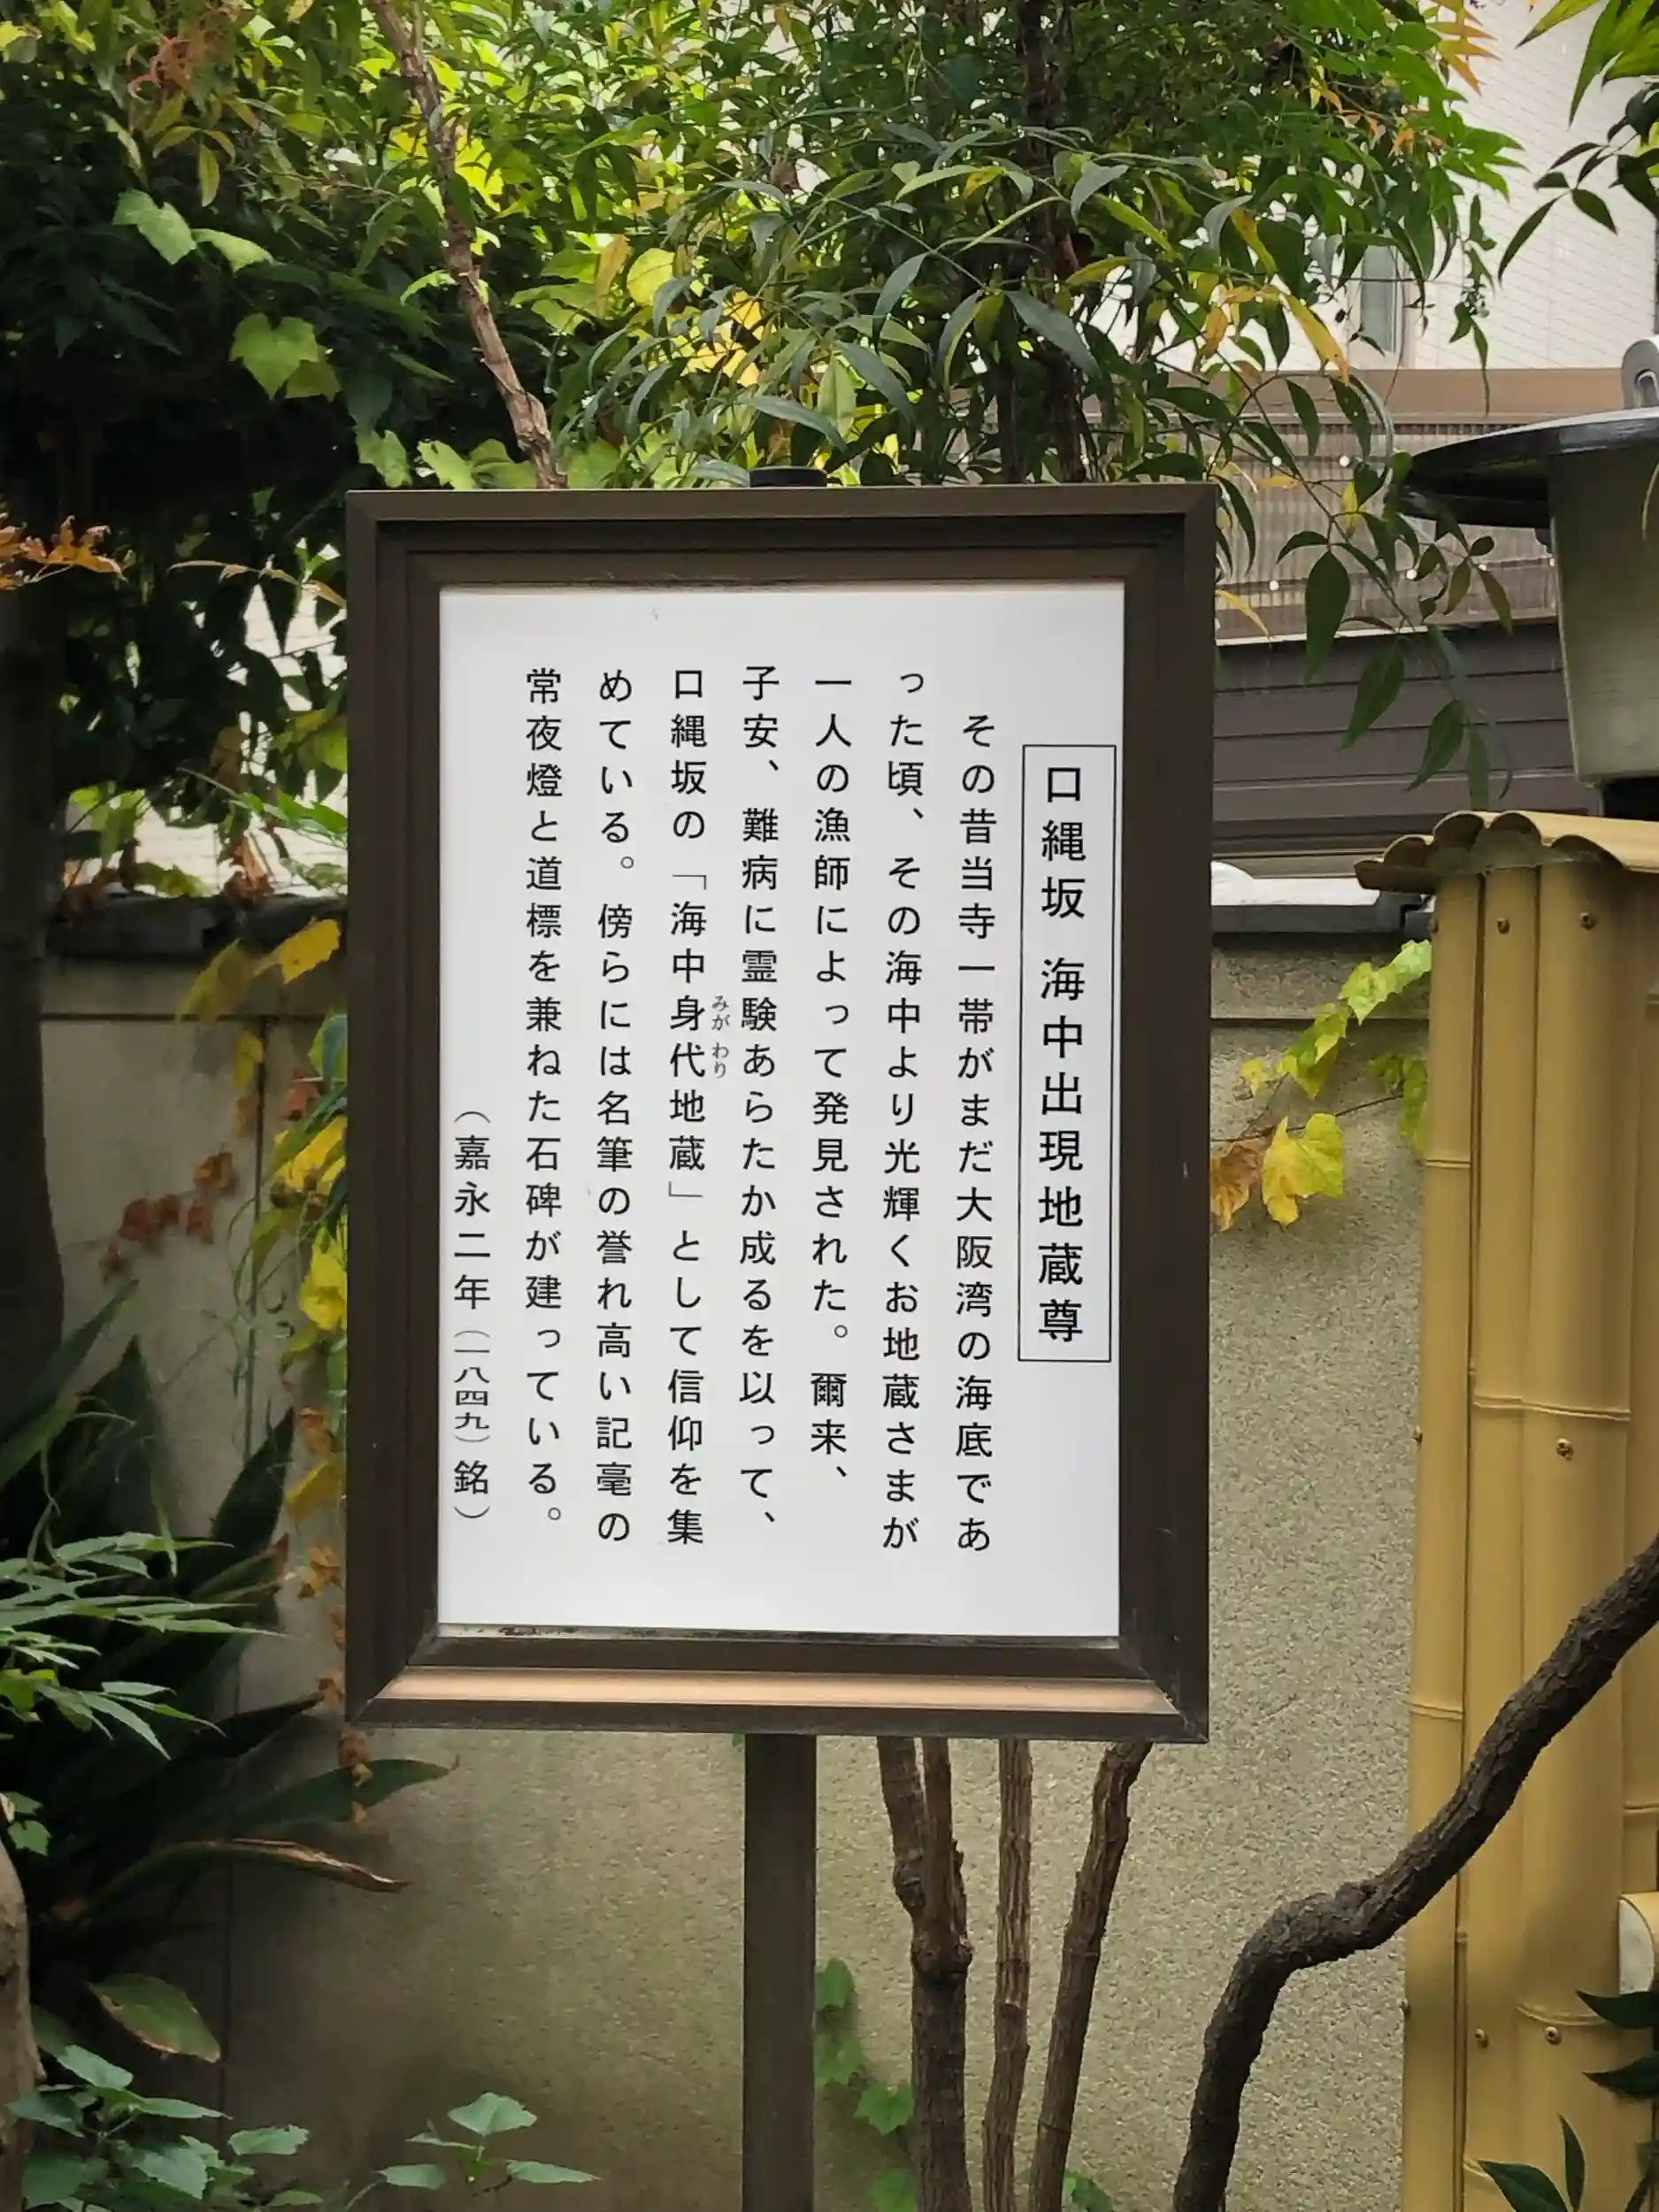 口縄坂 海中出現地蔵尊
その昔当寺一帯がまだ大阪湾の海底であ
った頃、その海中より光輝くお地蔵さまが
一人の漁師によって発見された。爾来、
子安、難病に霊験あらたか成るを以って、
口縄坂の「海中身代地蔵」として信仰を集
みが わり
めている。傍らには名筆の誉れ高い記毫の
常夜燈と道標を兼ねた石碑が建っている。
（嘉永二年（一八四九）銘）